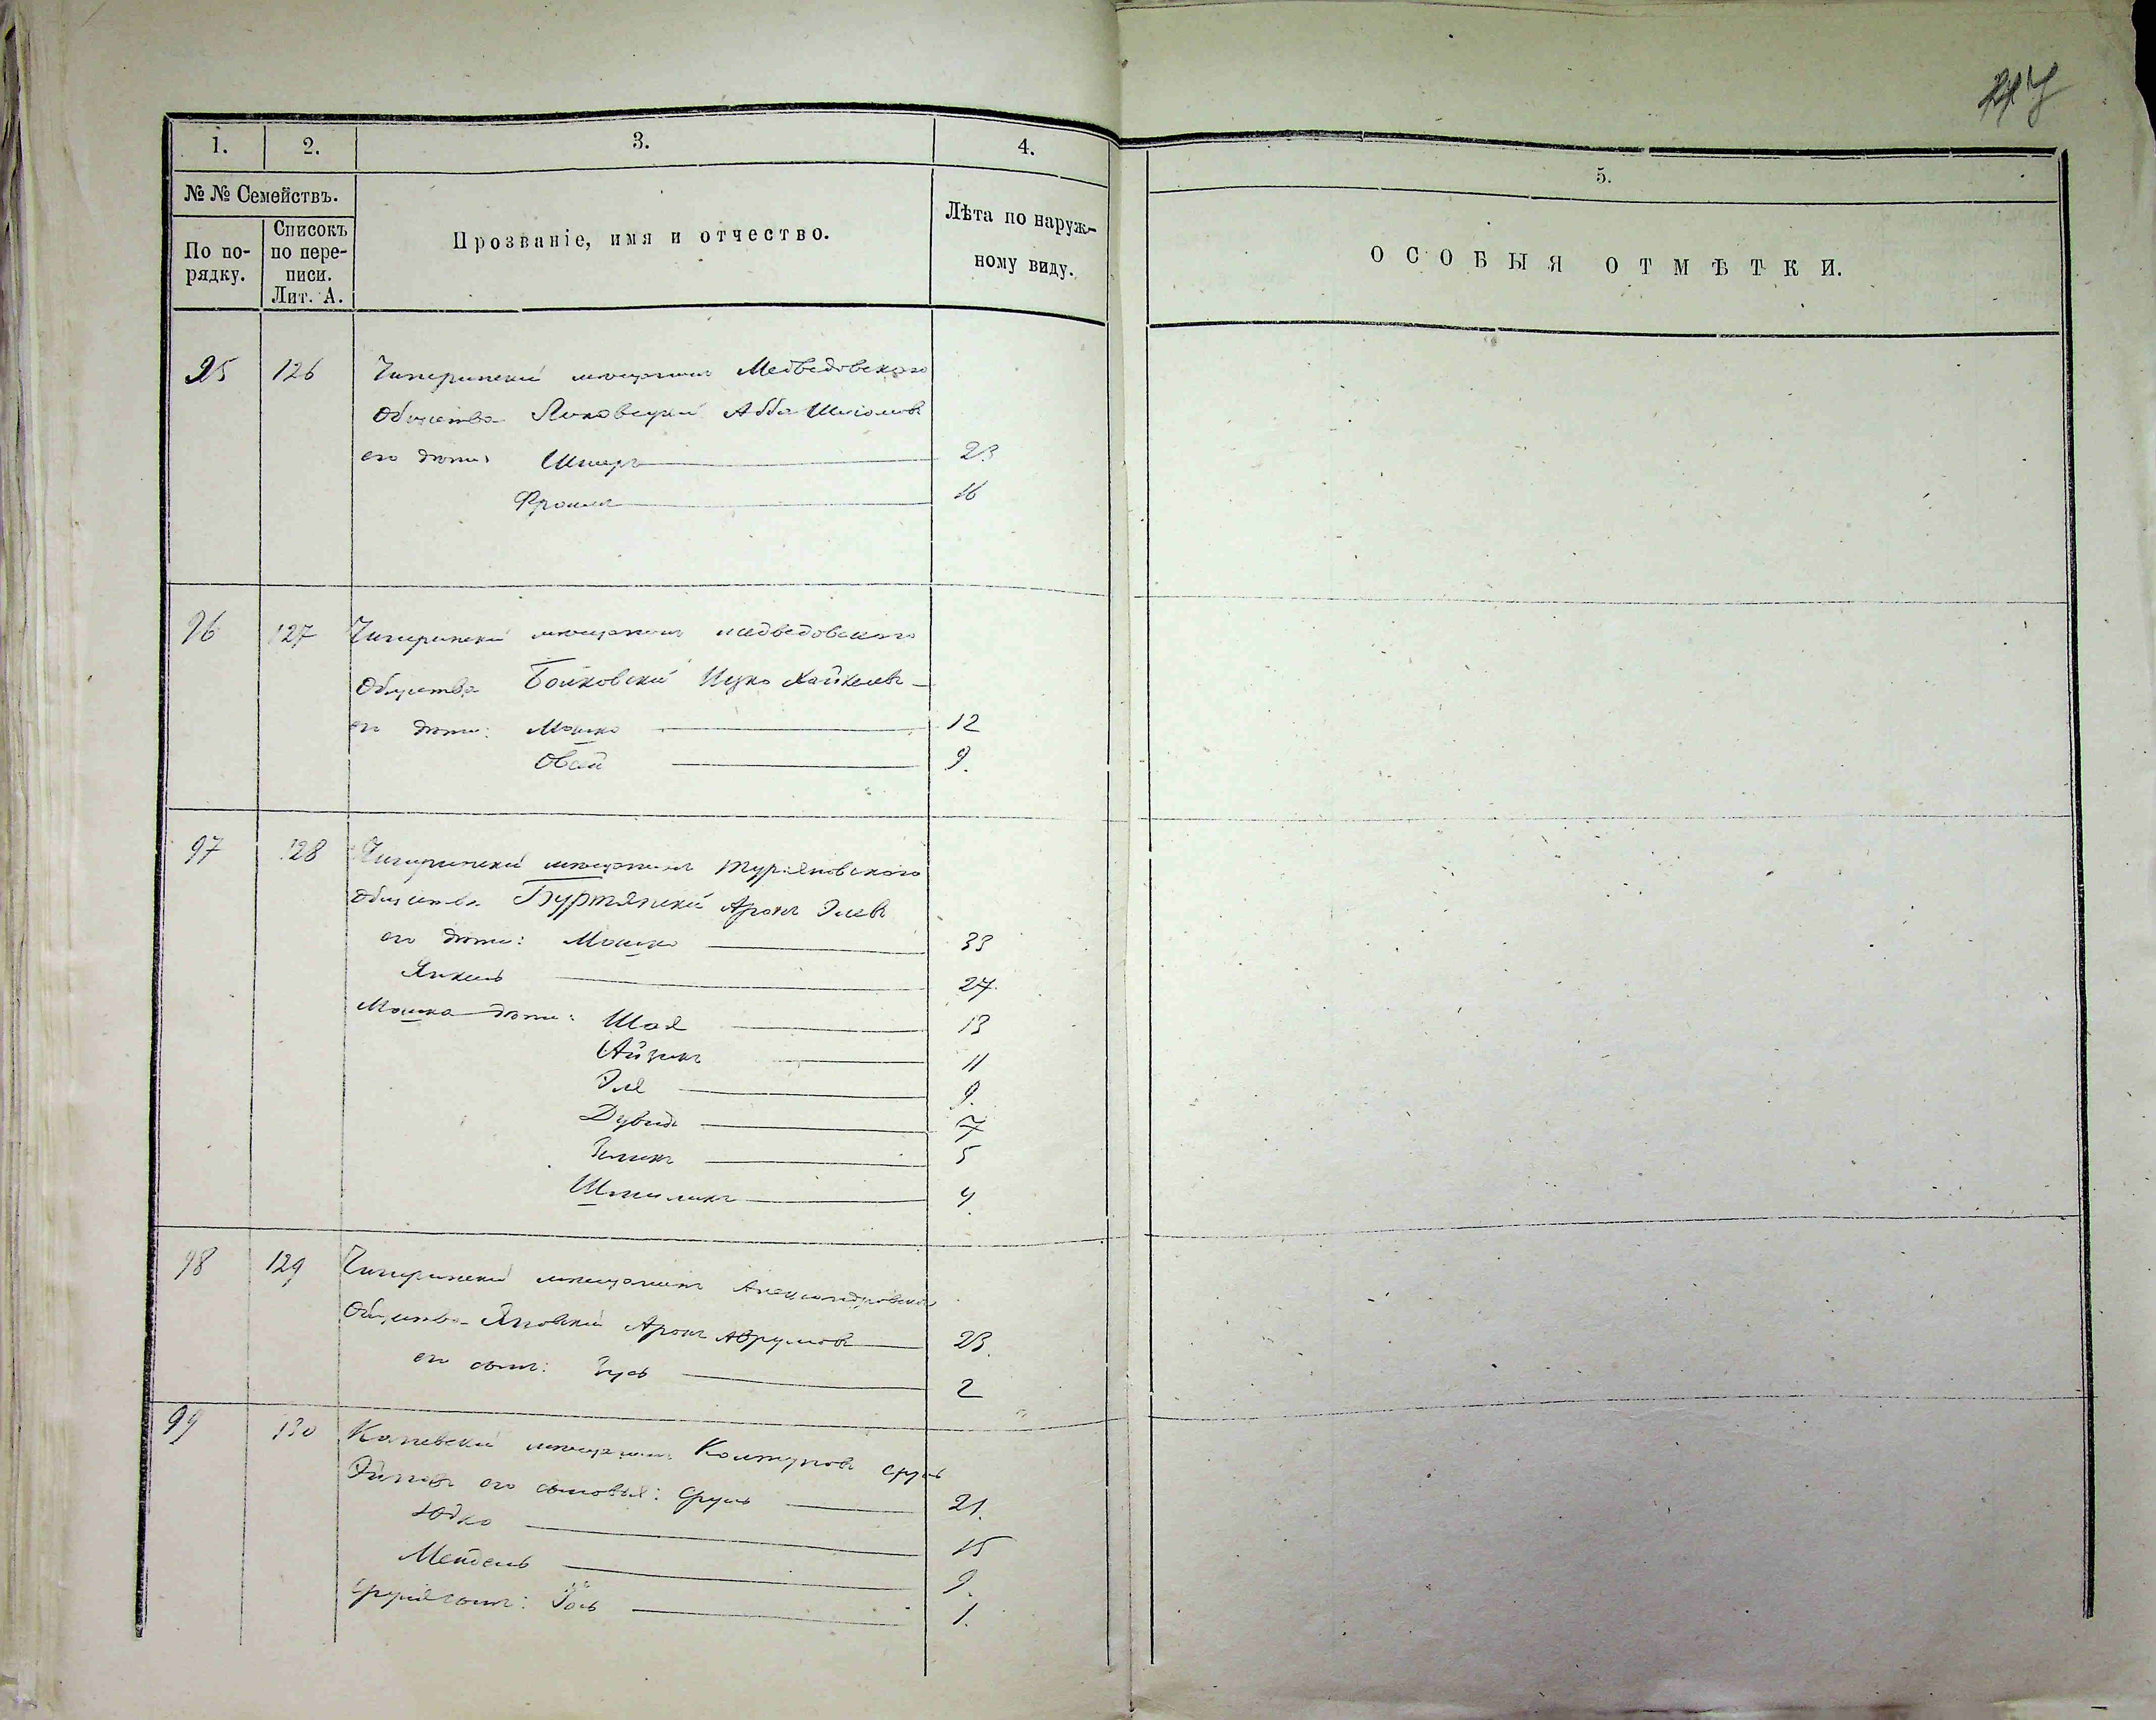 1. 2. 3. 4. 5.
№ № Семействъ.
По порядку.
Списокъ по переписи. Лит. А.
Прозваніе, имя и отчество.
Лѣта по наружному виду.
ОСОБЫЯ ОТМѢТКИ.
95 126 Чигиринскій мѣщанинъ Медведовскаго
Общества Абба
его дѣти: Шмеръ 23
Фроимъ 16
96 127 Чигиринскій мѣщанинъ медведовскаго
Общества Бойковскій Ицко Хайкелевъ
его дѣти: Мошко 12
Овсей 9.
97 128 Чигиринскій мѣщанинъ
Общества Буртянскій Аронъ Элевъ
его дѣти: Мошко 33
Янкель 27.
Мошка дѣти: Шая 13
Айзикъ 11
Эля 9.
Дувидъ 7
Зеликъ 5
Шмиликъ 4.
98 129 Чигиринскій мѣщанинъ Александровскаго
Общества Яновскій Аронъ Аврумовъ 23.
его сынъ: Зусь 2
99 130 Каневскій мѣщанинъ Колтуновъ Сруль
его сыновья: Сруль 21.
Юдко 15
Мендель 9.
Сруля сынъ: 1.